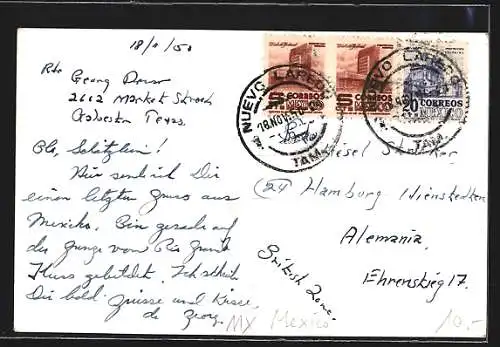 18/ /50
Rte Georg
2612 Market Street
Galveston Texas.
Ola, Schätzlein!
Nun send ich Dir
einen letzten Gruss aus
Mexiko. Bin gerade auf
der Grenze vom Rio Grande
Fluss gebildet. Ich schreib
Dir bald. Grüsse und Küsse,
de Georg
NUEVO LAREDO
18.NOV.50
TAM.
CORREOS
MEXICO
CORREOS
MEXICO
NUEVO LAREDO
TAM.
20 CORREOS
MEXICO
(24 Hamburg Nienstedten
Alemania.
Ehrensteig 17.
British Zone.
MX Mexico
10.-